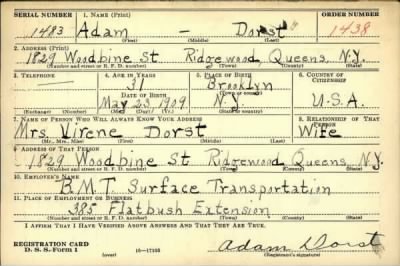 SERIAL NUMBER 1. NAME (Print) ORDER NUMBER
1483 Adam — Dorst 1438
(First) (Middle) (Last)
2. ADDRESS (Print)
1829 Woodbine St Ridgewood, Queens, N.Y.
(Number and street or R. F. D. number) (Town) (County) (State)
3. TELEPHONE 4. AGE IN YEARS 5. PLACE OF BIRTH 6. COUNTRY OF CITIZENSHIP
— 31 Brooklyn
DATE OF BIRTH (Town or county)
May 23 1909 N.Y. U.S.A.
(Exchange) (Number) (Mo.) (Day) (Yr.) (State or country)
7. NAME OF PERSON WHO WILL ALWAYS KNOW YOUR ADDRESS 8. RELATIONSHIP OF THAT PERSON
Mrs. Virene Dorst Wife
(Mr., Mrs., Miss) (First) (Middle) (Last)
9. ADDRESS OF THAT PERSON
1829 Woodbine St Ridgewood Queens, N.Y.
(Number and street or R. F. D. number) (Town) (County) (State)
10. EMPLOYER'S NAME
B.M.T. Surface Transportation
11. PLACE OF EMPLOYMENT OR BUSINESS
385 Flatbush Extension
(Number and street or R. F. D. number) (Town) (County) (State)
I AFFIRM THAT I HAVE VERIFIED ABOVE ANSWERS AND THAT THEY ARE TRUE.
REGISTRATION CARD
D. S. S. FORM 1 (over) Adam Dorst
(Registrant's signature)